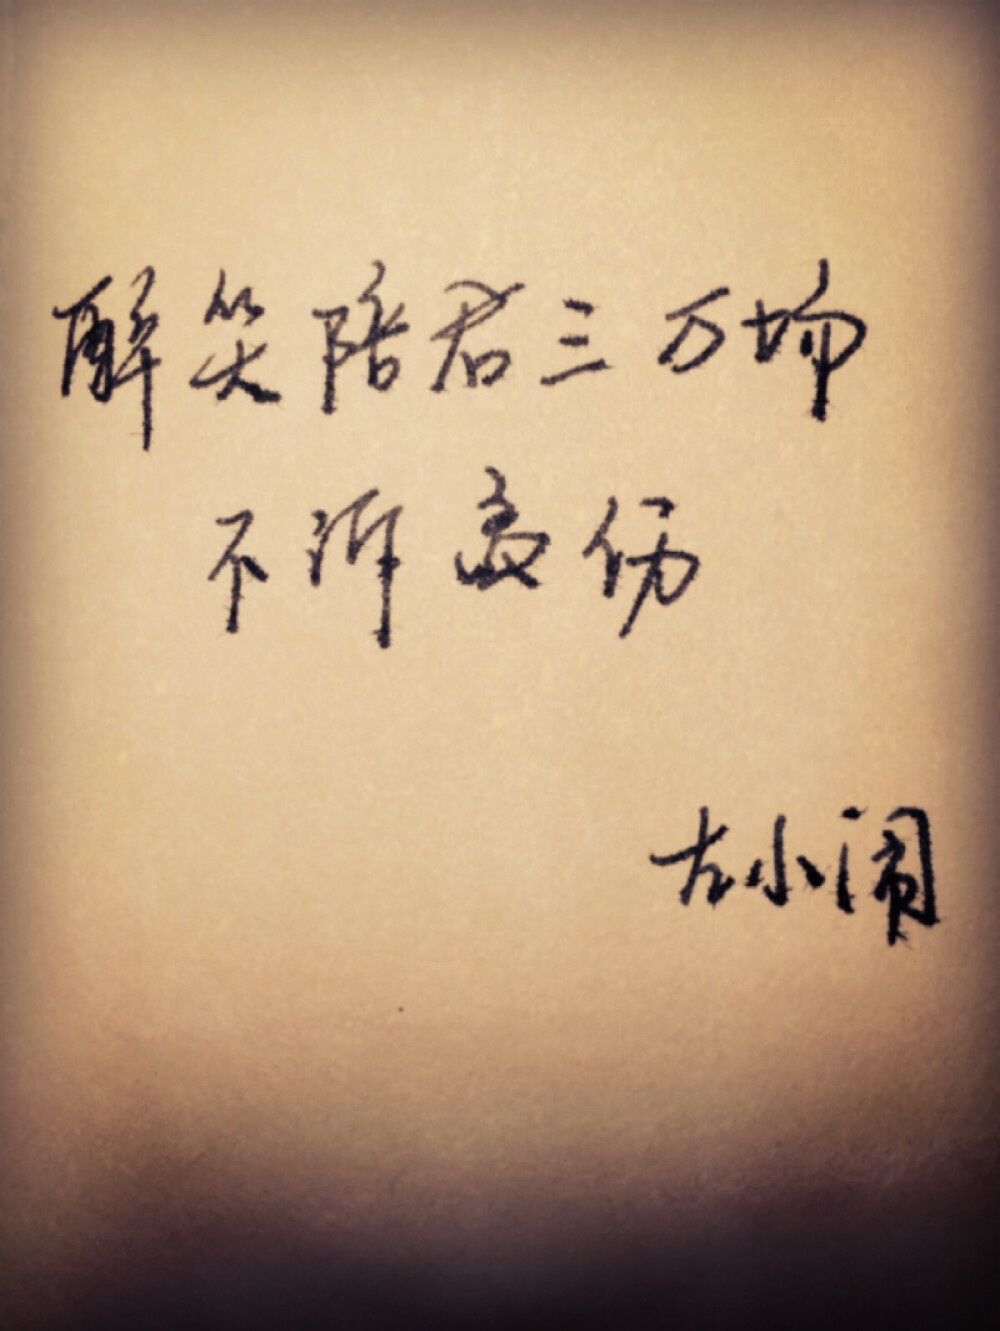 醉笑陪君三万场
不诉离伤
左小闹